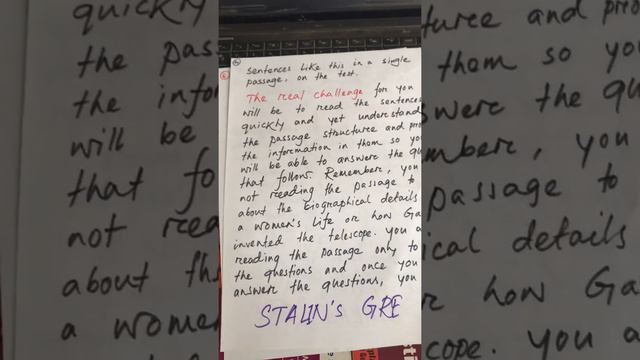 sentences like this in a single
passage, on the test.
The real challenge for you
will be to read the sentences
quickly and yet understand
the passage structure and
the information in them so you
will be able to answer the
that follows. Remember, you
not reading the passage to
about the biographical details
a women's life or how Ga
invented the telescope. you a
reading the passage only to
the questions and once you
answer the questions, you
STALIN'S GRE